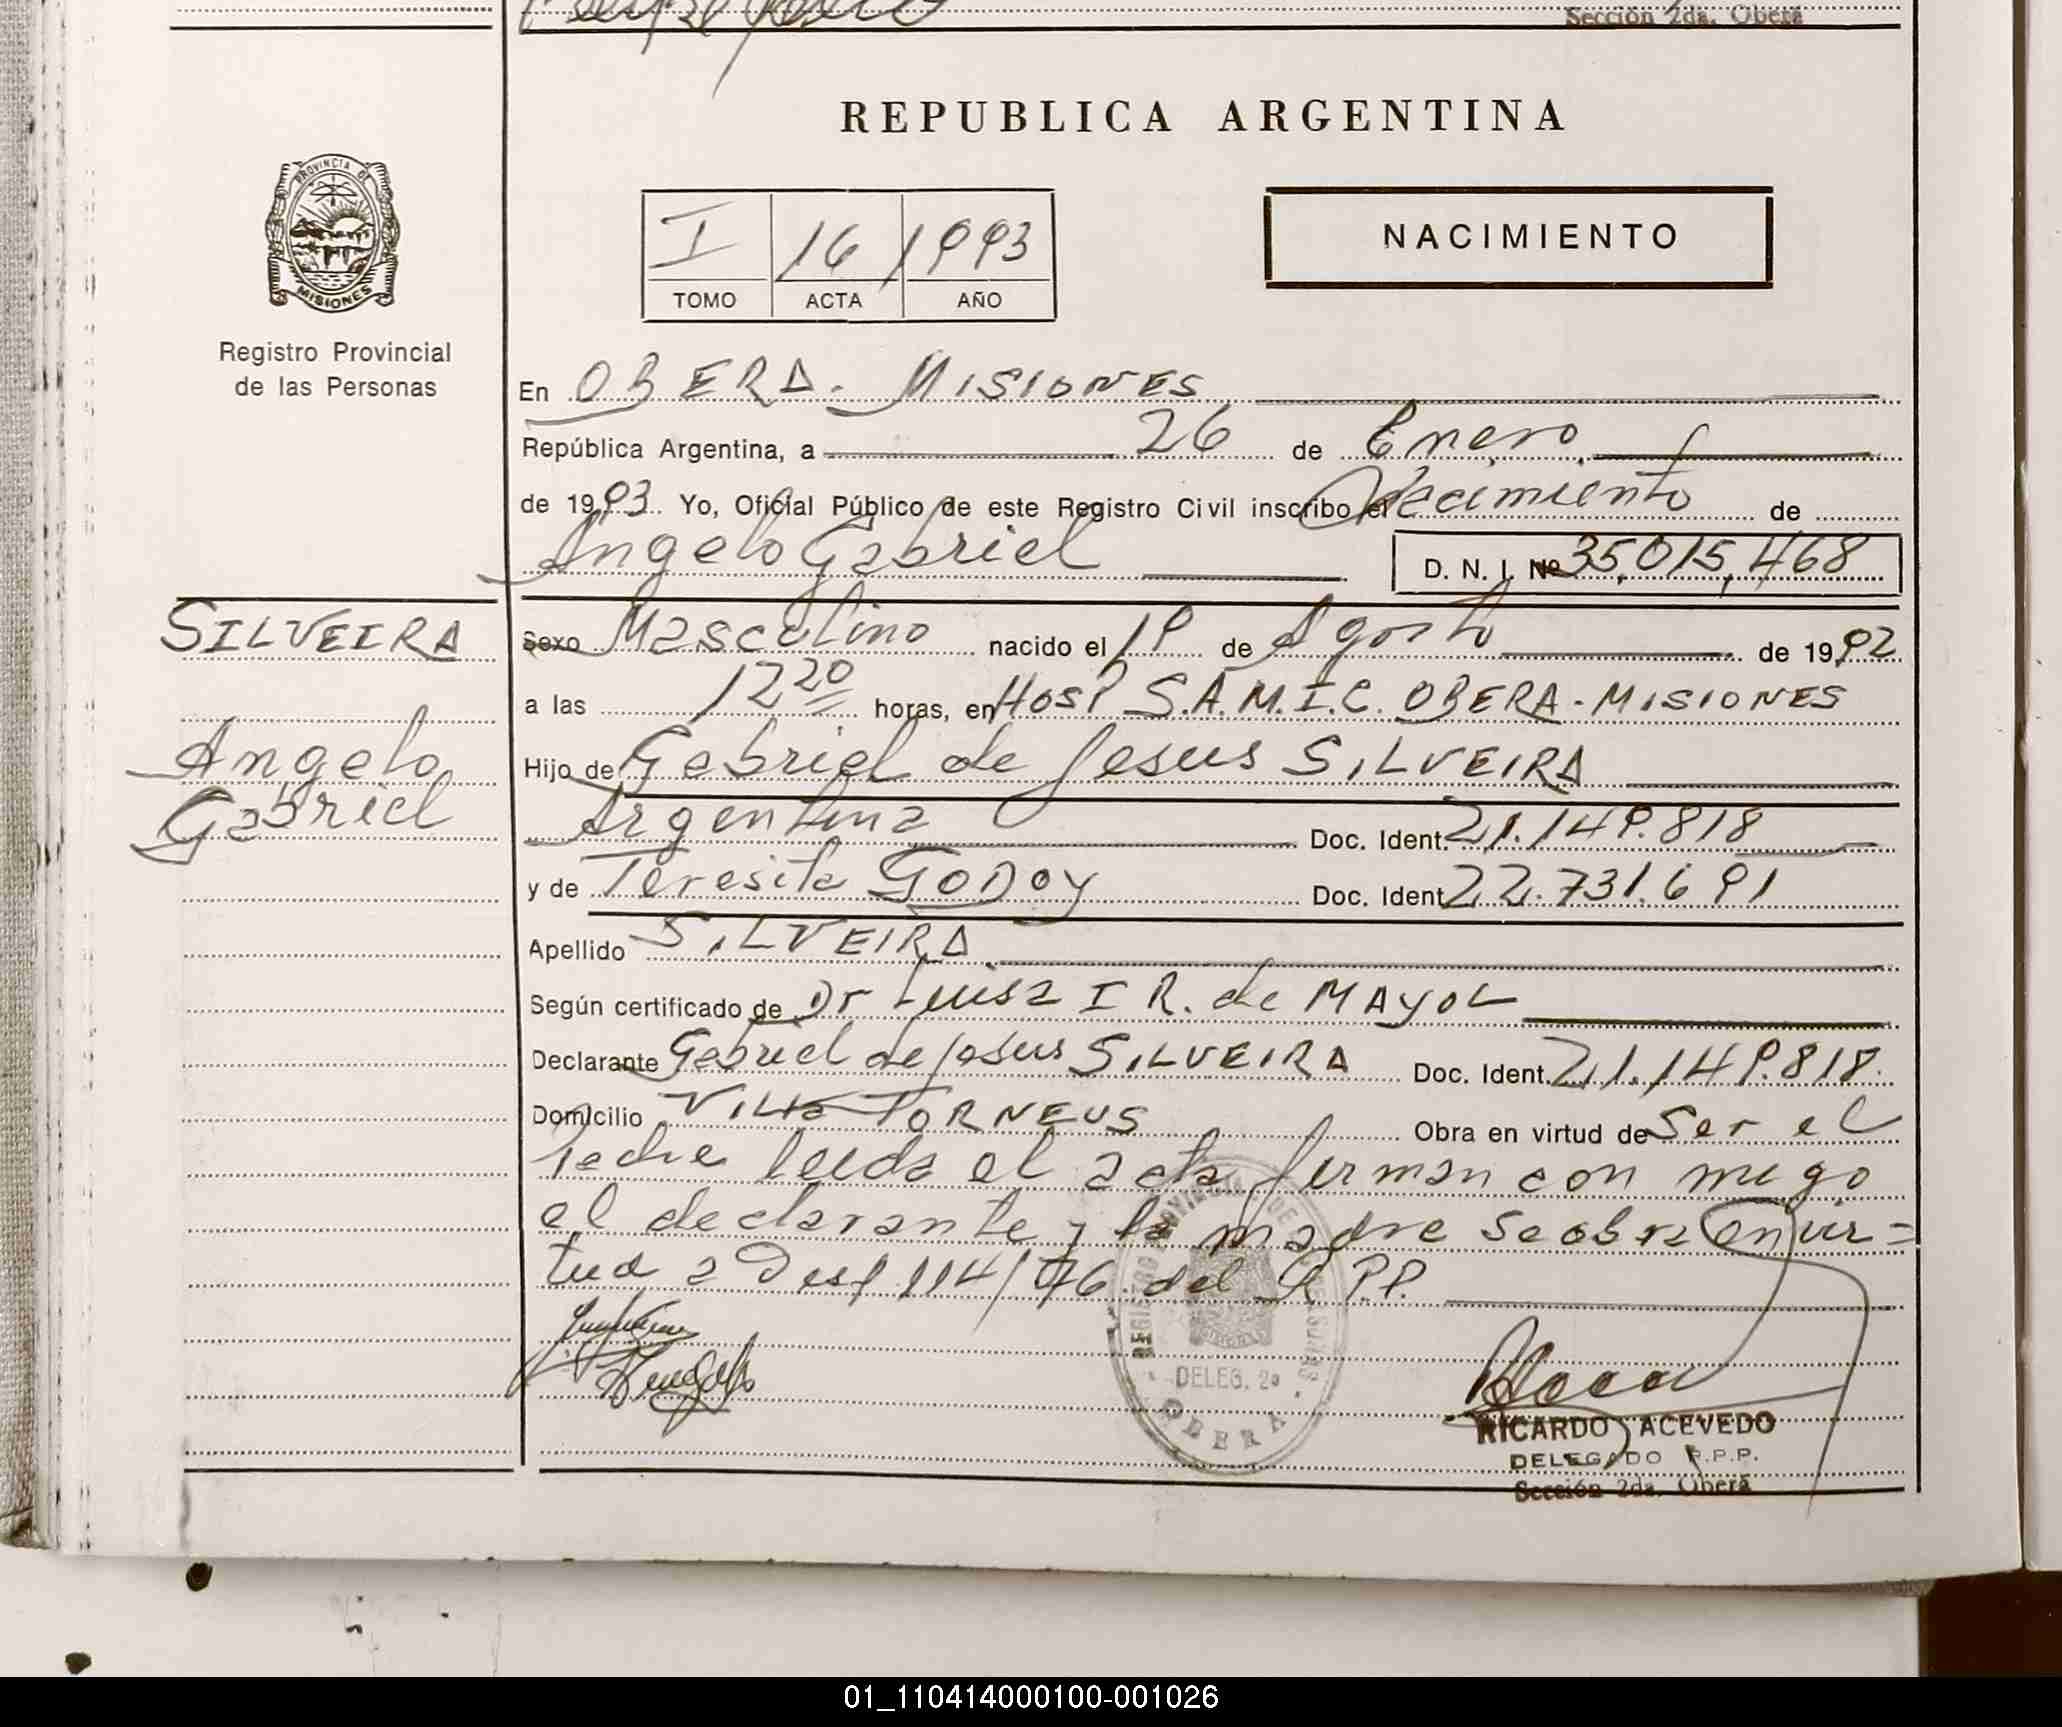 Sección 2da. Oberá
REPUBLICA ARGENTINA
PROVINCIA DE
MISIONES
Registro Provincial
de las Personas
I 16 1993
TOMO ACTA AÑO
NACIMIENTO
En OBERA - MISIONES
República Argentina, a 26 de Enero
de 1993 Yo, Oficial Público de este Registro Civil inscribo el Nacimiento de
Angelo Gabriel D. N. I. Nº 35,015,468
SILVEIRA
Angelo
Gabriel
Sexo Masculino nacido el 19 de Agosto de 1992
a las 12 20 horas, en HOSP S.A.M.I.C. OBERA - MISIONES
Hijo de Gabriel de Jesus SILVEIRA
Argentina Doc. Ident. 21.149.818
y de Teresita GODOY Doc. Ident. 22.731.691
Apellido SILVEIRA
Según certificado de Dr Luisa I R. de MAYOL
Declarante Gabriel de Jesus SILVEIRA Doc. Ident. 21.149.818.
Domicilio Villa TORNEUS Obra en virtud de Ser el
Padre leida el acta firman con migo
el declarante y la madre se obra en vir=
tud a Disp 114/76 del R.P.P.
DELEG. 2a
OBERA
RICARDO ACEVEDO
DELEGADO R.P.P.
Sección 2da. Oberá
01_110414000100-001026